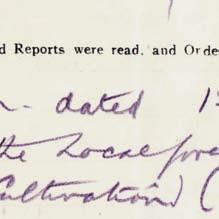 d Reports were read, and Orde
- dated 1
the Local
Cultivation) (